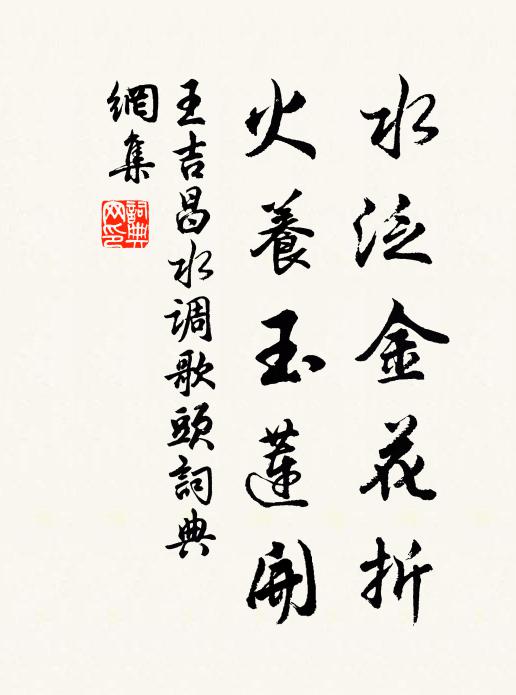 水泛金花折
火養玉蓮開
王吉昌水调歌頭詞典
網集
詞典
网印